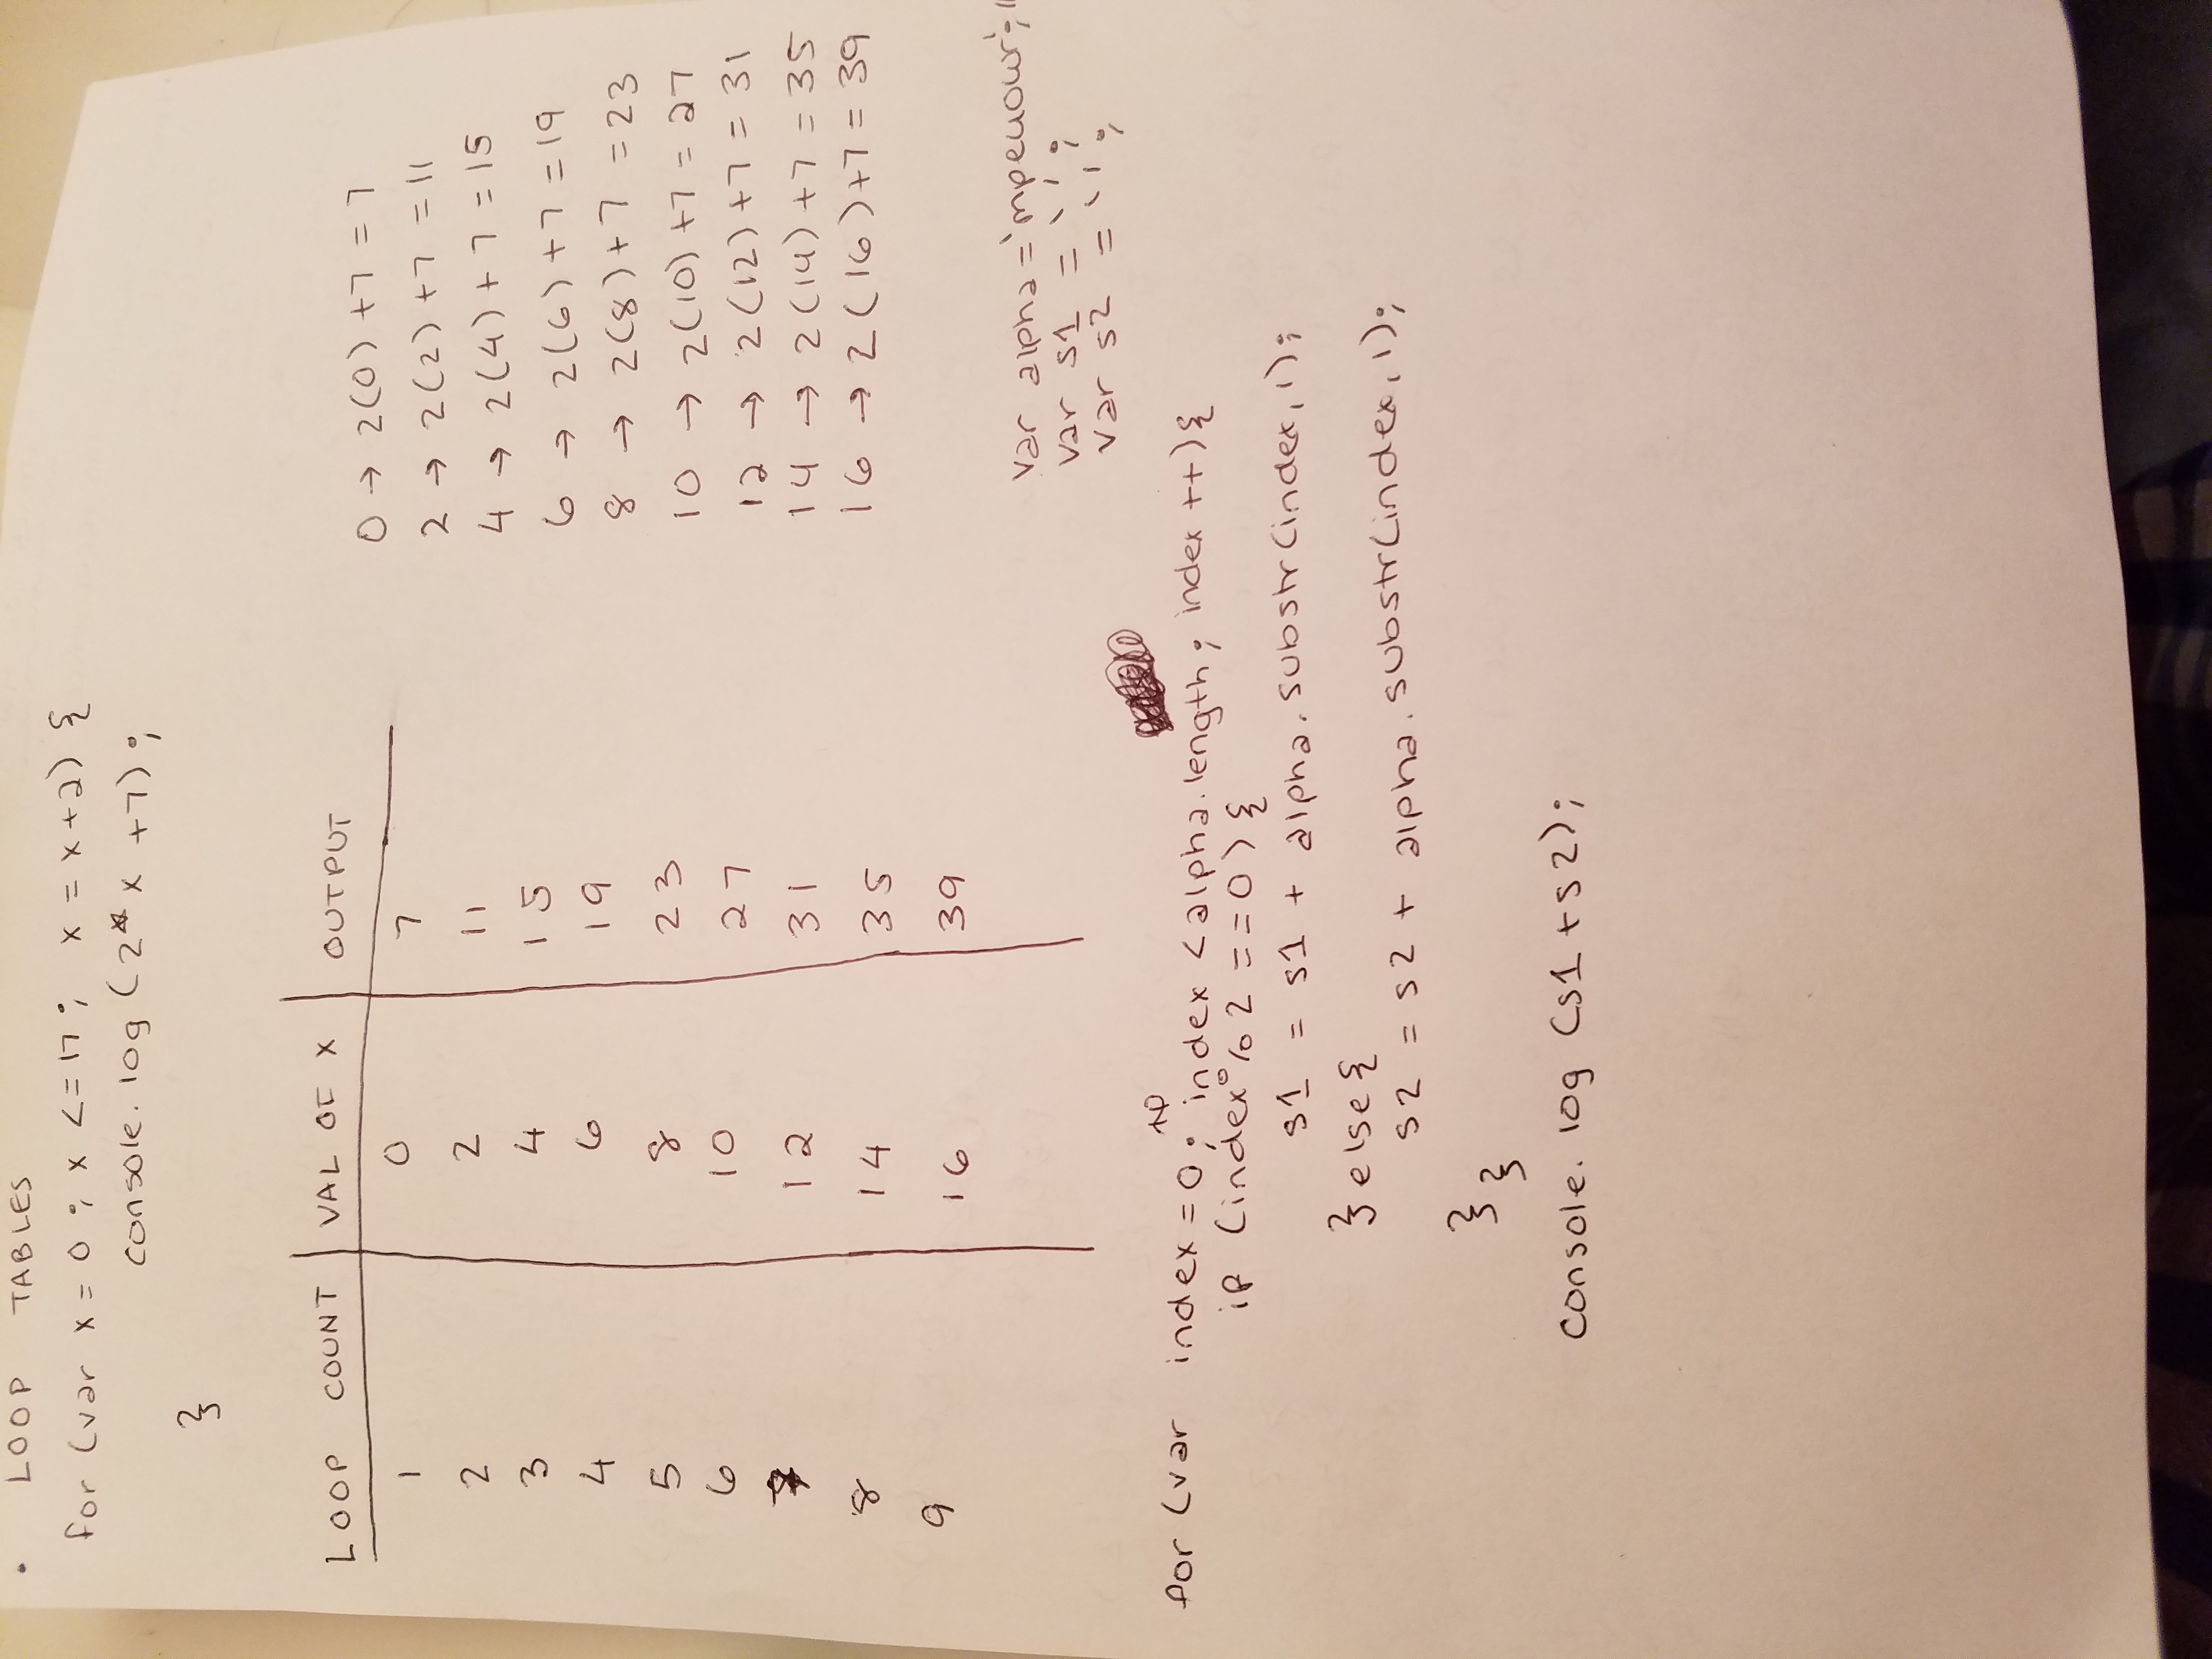 • LOOP TABLES
for (var x = 0 ; x <= 17 ; x = x+2) {
console.log (2* x +7) ;
}
LOOP COUNT VAL OF X OUTPUT
1 0 7
2 2 11
3 4 15
4 6 19
5 8 23
6 10 27
7 12 31
8 14 35
9 16 39
0 → 2(0) +7 = 7
2 → 2(2) +7 = 11
4 → 2(4) + 7 = 15
6 → 2(6) +7 = 19
8 → 2(8) + 7 = 23
10 → 2(10) +7 = 27
12 → 2(12) +7 = 31
14 → 2(14) +7 = 35
16 → 2(16) +7 = 39
var alpha =
var s1 = ' ' ;
var s2 = ' ' ;
for (var index = 0 ; index < alpha.length ; index ++) {
if (index % 2 == 0) {
s1 = s1 + alpha.substr(index, 1);
} else {
s2 = s2 + alpha.substr(index, 1);
} }
console.log (s1 + s2);